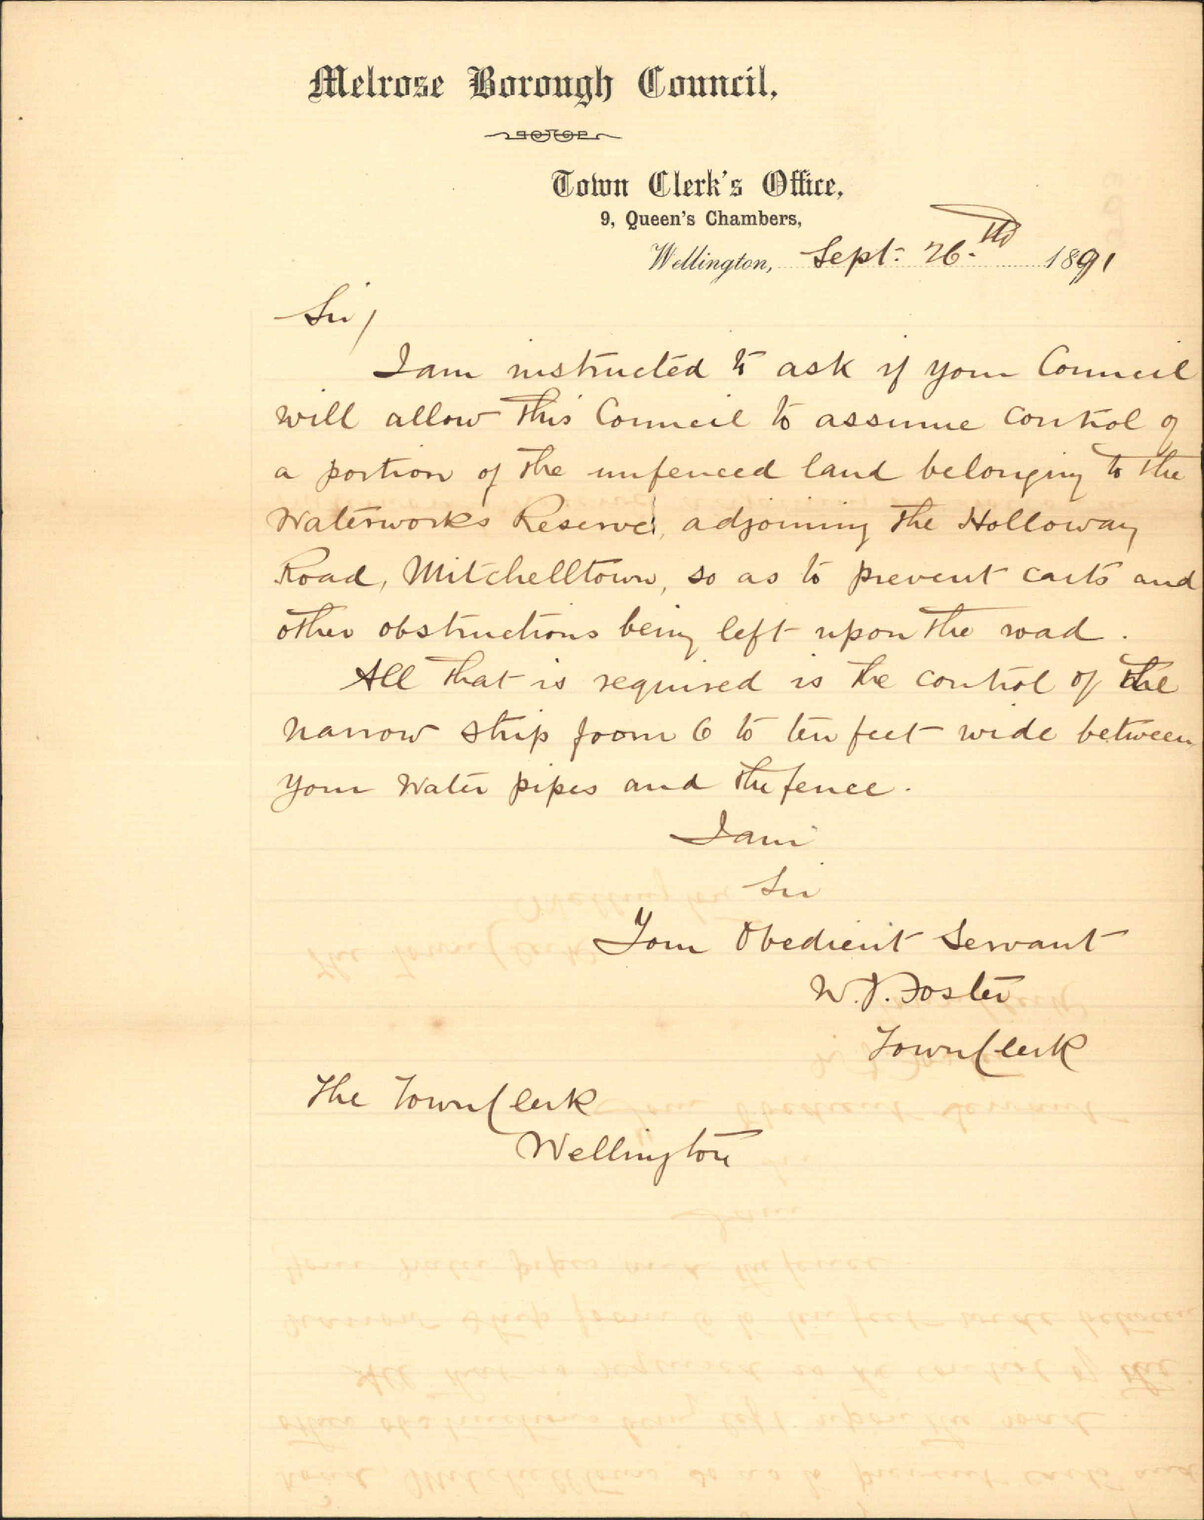 Melrose Borough Council,
Town Clerk's Office,
9, Queen's Chambers,
Wellington, Sept. 26th 1891
Sir,
I am instructed to ask if your Council
will allow this Council to assume control of
a portion of the unfenced land belonging to the
Waterworks Reserve, adjoining the Holloway
Road, Mitchelltown, so as to prevent carts and
other obstructions being left upon the road.
All that is required is the control of the
narrow strip from 6 to ten feet wide between
your water pipes and the fence.
I am
Sir
Your Obedient Servant
W. J. Foster
Town Clerk
The Town Clerk
Wellington